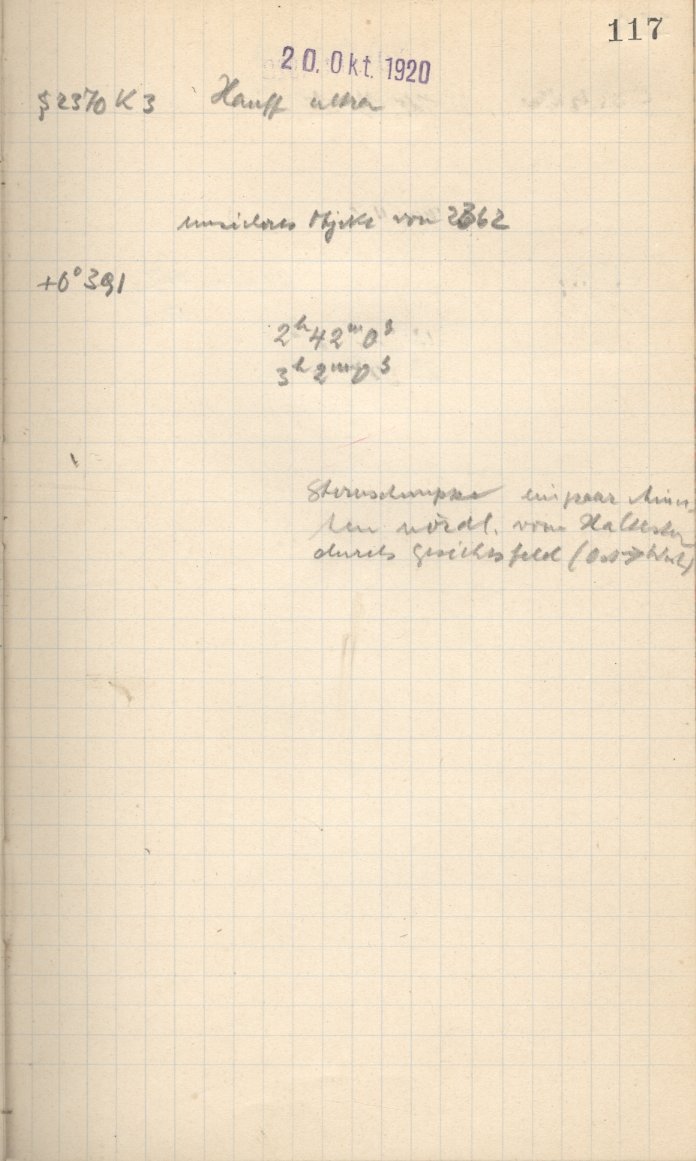 117
20. Okt. 1920
§ 2370 K 3 Hauff ultra
unsicheres Objekt von 2362
+0° 391
2ʰ 42ᵐ 0ˢ
3ʰ 2ᵐ 0ˢ
Sternschnuppe ein paar Minu-
ten nördl. vom Haltestern
durchs Gesichtsfeld (Ost→West)